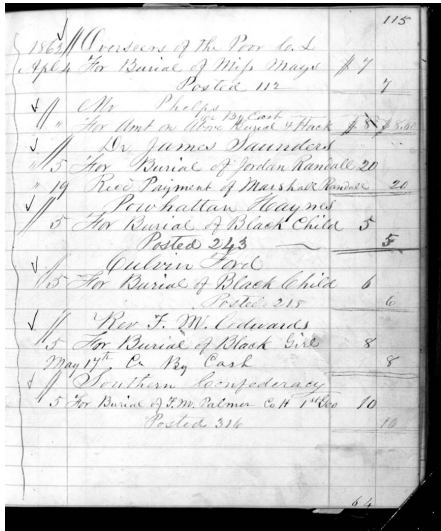 115
1862 // Overseers of the Poor Co. L
Apl 4 For Burial of Miss Mays $ 7
Posted 112 7
// Mr Phelps
By Cash
" For Amt on Above Burial & Hack $ 8
// Dr. James Saunders
" 5 For Burial of Jordan Randall 20
" 19 Recd Payment of Marshall Randall 20
// Powhattan Haynes
5 For Burial of Black Child 5
Posted 243 5
// Culvin Ford
5 For Burial of Black Child 6
Posted 215 6
// Rev T. W. Edwards
5 For Burial of Black Girl 8
May 17th Cr By Cash 8
// Southern Confederacy
5 For Burial of F.M. Palmer Co H 1st Geo 10
Posted 316 10
64